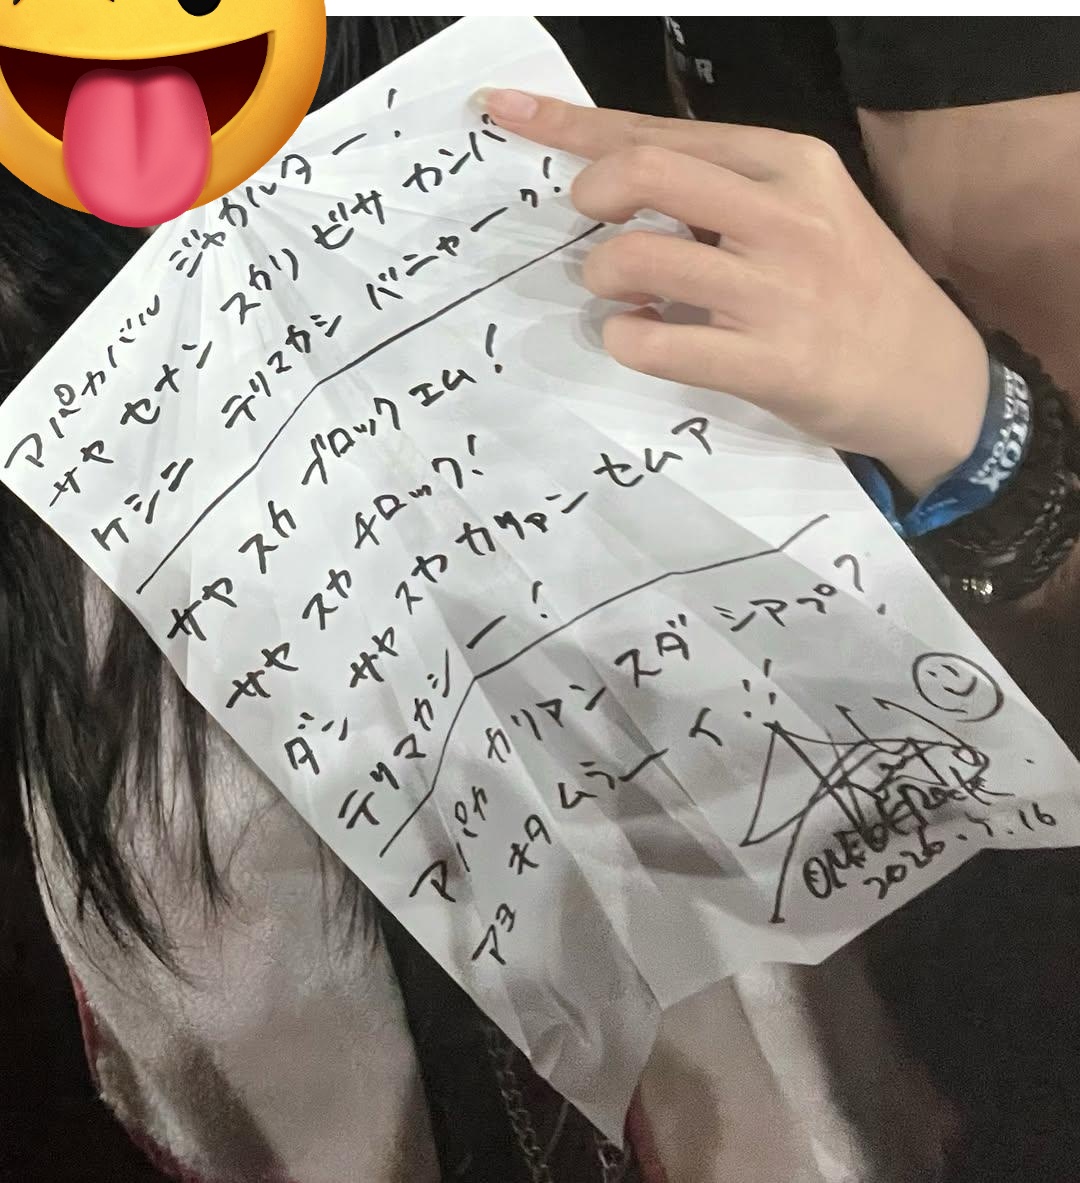 アパカバル ジャカルター!
サヤ セナン スカリ ビサ カンバ
ケシニ テリマカシ バニャーック!
サヤ スカ ブロックエム!
サヤ スカ チロック!
ダン サヤ スカ カリアン セムア
テリマカシー!
アパカ カリアン スダ シアプ?
アヨ キタ ムラーイ!!
ONE OK ROCK
2026.5.16
DETOX
ASIA TOUR